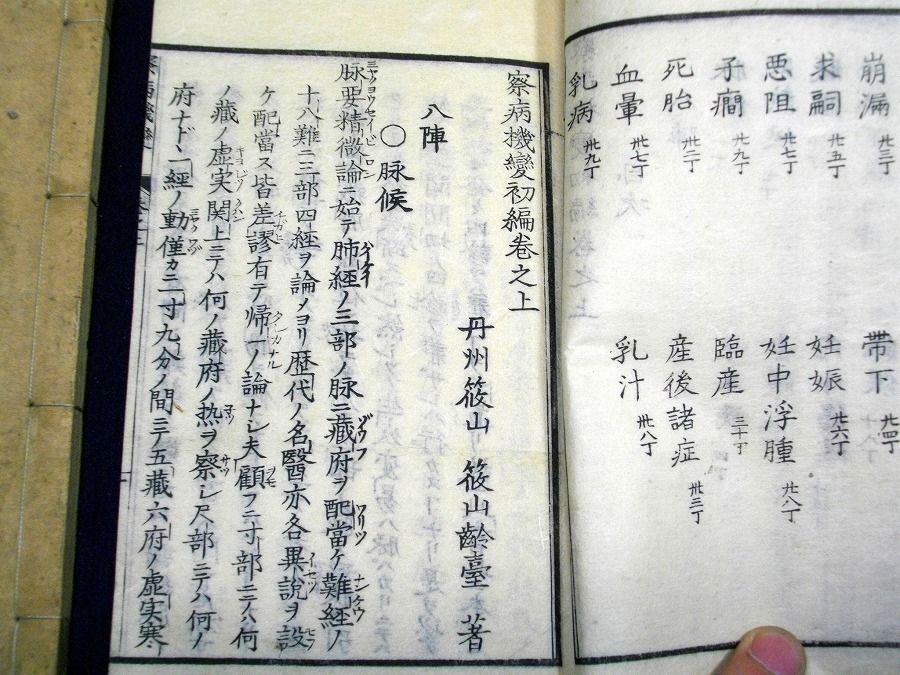 崩漏 廿三丁
帯下 廿四丁
求嗣 廿五丁
妊娠 廿六丁
悪阻 廿七丁
妊中浮腫 廿八丁
子癇 廿九丁
臨産 三十丁
死胎 丗一丁
産後諸症 丗三丁
血暈 丗七丁
乳汁 丗八丁
乳病 丗九丁
察病機變初編巻之上
丹州篠山 篠山齡臺 著
八陣
○脉候
脉要精微論ニ始テ肺経ノ三部ノ脉ニ藏府ヲ配當ケ難経ノ
十八難ニ三部四経ヲ論メヨリ歴代ノ名醫亦各異説ヲ設
ケ配當ス皆差謬有テ帰一ノ論ナシ夫顧フニ寸部ニテハ何
ノ藏ノ虚実関上ニテハ何ノ藏府ノ热ヲ察シ尺部ニテハ何ノ
府ナド一経ノ動僅カニ一寸九分ノ間ニテ五藏六府ノ虚実寒